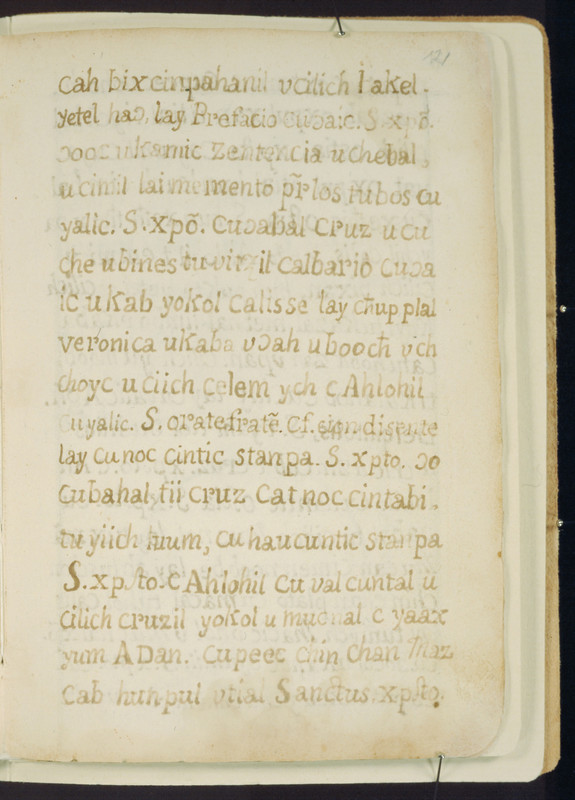 121
cah bix cinpahanil v cilich I akel.
yetel haɔ, lay Prefacio cuɔaic. S. xpõ.
ɔooc u kamic Zentencia u chebal,
u cimil lai memento pr̃ los tubos cu
yalic. S. xpõ. Cuɔabal Cruz u cu
che u bines tu vitzil Calbario Cuɔa
ic u kab yokol Calisse lay cħup plal
veronica u kaba vɔah u boocħ v ch
choyc u ciich Celem ych c Ahlohil
cu yalic. S. orate fratẽ. Cf. disente
lay cu noc cintic stanpa. S. xpto. ɔo
cubahal tii cruz Cat noc cintabi.
tu yiich luum, cu haucuntic stanpa
S. xpsto. C Ahlohil Cu valcuntal u
cilich cruzil yokol u mucnal c yaax
yum ADan. Cupeec chin chan
Cab huhpul vtial Sanctus. xpsto.